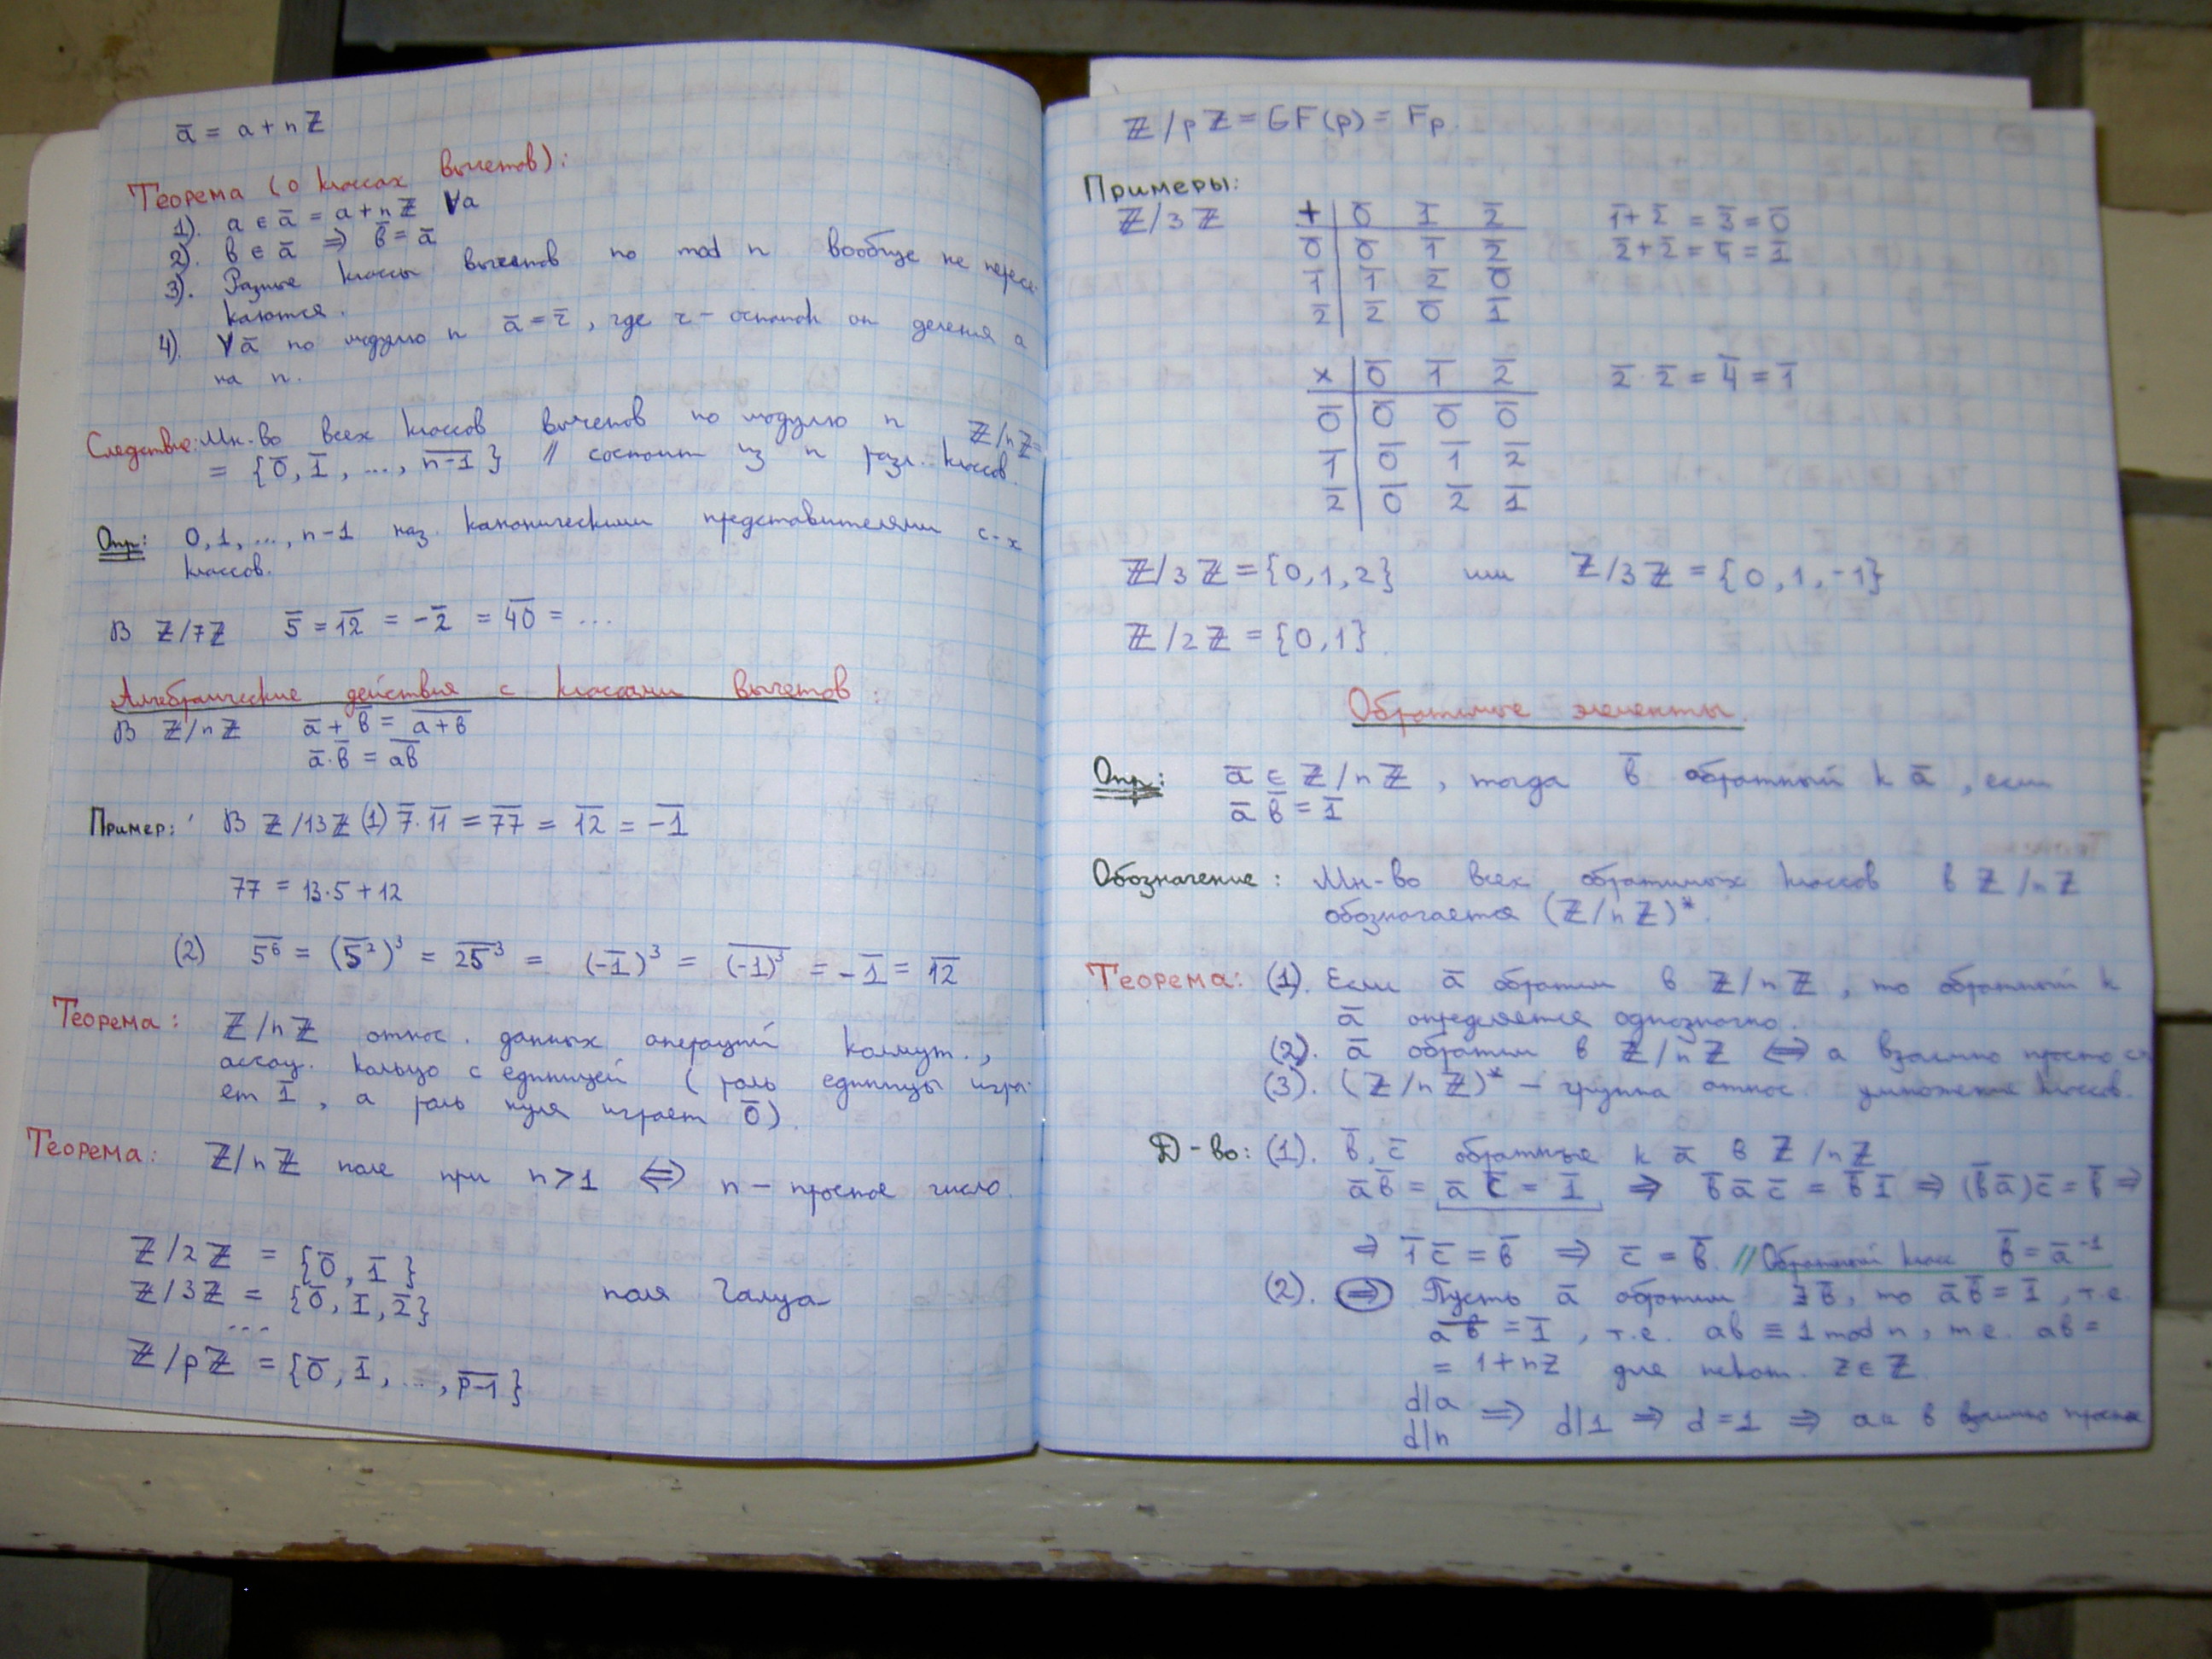 ā = a + nℤ
Теорема (о классах вычетов):
1). a ∈ ā = a + nℤ ∀a
2). b ∈ ā ⇒ b̄ = ā
3). Разные классы вычетов по mod n вообще не пересе-
каются.
4). ∀ā по модулю n ā = r̄, где r – остаток от деления a
на n.
Следствие: Мн-во всех классов вычетов по модулю n ℤ/nℤ =
= {0̄, 1̄, ..., n-1̅} // состоит из n разл. классов.
Опр: 0, 1, ..., n-1 наз. каноническими представителями с-х
классов.
В ℤ/7ℤ 5̄ = 1̅2̅ = -2̄ = 4̅0̅ = ...
Алгебраические действия с классами вычетов:
В ℤ/nℤ ā + b̄ = a̅+̅b̅
ā·b̄ = a̅b̅
Пример: В ℤ/13ℤ (1) 7̄·1̅1̅ = 7̅7̅ = 1̅2̅ = -̅1̅
77 = 13·5 + 12
(2) 5̅⁶ = (5̄²)³ = 2̅5̅³ = (-1̄)³ = (̅-̅1̅)̅³ = -1̄ = 1̅2̅
Теорема: ℤ/nℤ относ. данных операций коммут.,
ассоц. кольцо с единицей (роль единицы игра-
ет 1̄, а роль нуля играет 0̄).
Теорема: ℤ/nℤ поле при n>1 ⇔ n – простое число.
ℤ/2ℤ = {0̄, 1̄}
ℤ/3ℤ = {0̄, 1̄, 2̄} поля Галуа
...
ℤ/pℤ = {0̄, 1̄, ..., p̅-̅1̅}
ℤ/pℤ = GF(p) = Fp.
Примеры:
ℤ/3ℤ + | 0̄ 1̄ 2̄ 1̄+2̄ = 3̄ = 0̄
0̄ | 0̄ 1̄ 2̄ 2̄+2̄ = 4̄ = 1̄
1̄ | 1̄ 2̄ 0̄
2̄ | 2̄ 0̄ 1̄
× | 0̄ 1̄ 2̄ 2̄·2̄ = 4̄ = 1̄
0̄ | 0̄ 0̄ 0̄
1̄ | 0̄ 1̄ 2̄
2̄ | 0̄ 2̄ 1̄
ℤ/3ℤ = {0,1,2} или ℤ/3ℤ = {0,1,-1}
ℤ/2ℤ = {0,1}.
Обратимые элементы.
Опр: ā ∈ ℤ/nℤ, тогда b̄ обратный к ā, если
ā b̄ = 1̄
Обозначение: Мн-во всех обратимых классов в ℤ/nℤ
обозначается (ℤ/nℤ)*.
Теорема: (1). Если ā обратим в ℤ/nℤ, то обратный к
ā определяется однозначно.
(2). ā обратим в ℤ/nℤ ⇔ a взаимно просто с n
(3). (ℤ/nℤ)* – группа относ. умножения классов.
Д-во: (1). b̄, c̄ обратные к ā в ℤ/nℤ
āb̄ = āc̄ = 1̄ ⇒ b̄āc̄ = b̄1̄ ⇒ (b̄ā)c̄ = b̄ ⇒
⇒ 1̄c̄ = b̄ ⇒ c̄ = b̄. // Обратный класс b̄ = ā⁻¹
(2). ⇒ Пусть ā обратим ∃b̄, то āb̄ = 1̄, т.е.
a̅b̅ = 1̄, т.е. ab ≡ 1 mod n, т.е. ab =
= 1 + nz для некот. z ∈ ℤ.
d|a
d|n ⇒ d|1 ⇒ d=1 ⇒ a и в взаимно просты